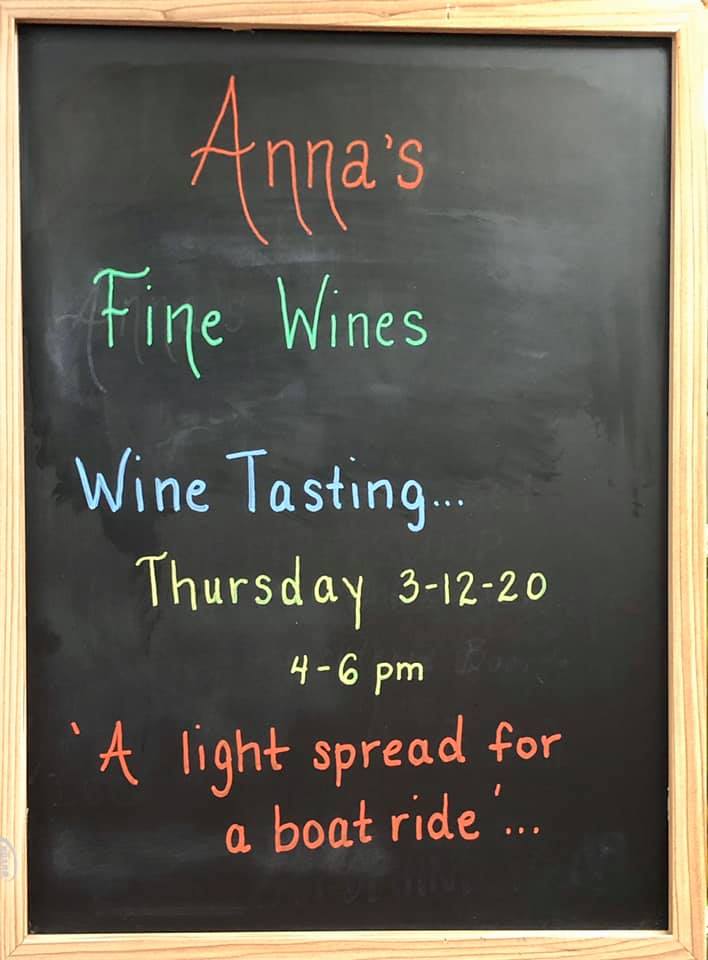 Anna's
Fine Wines
Wine Tasting...
Thursday 3-12-20
4-6 pm
'A light spread for
a boat ride'...